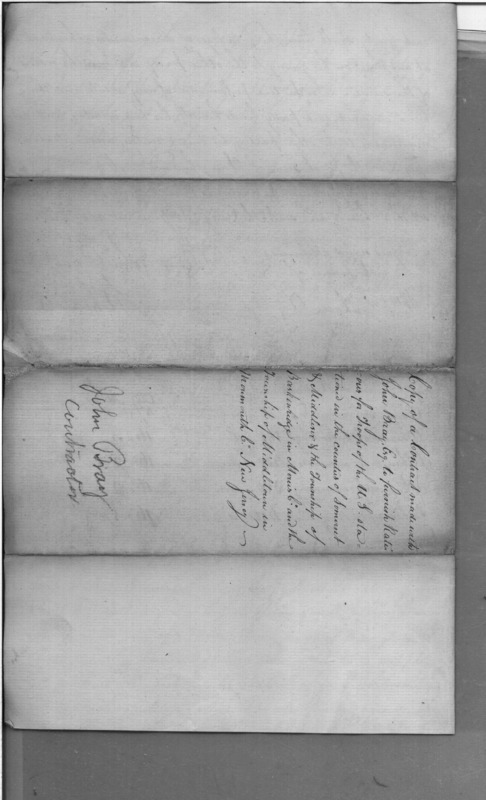 Copy of a Contract made with
John Bray Esq. to furnish Rati
ons for Troops of the U.S. sta-
tioned in the counties of Somerset
& Middlesex & the Township of
in Morris Co. and the
Township of Middletown in
Monmouth Co. New Jersey
John Bray
Contractor